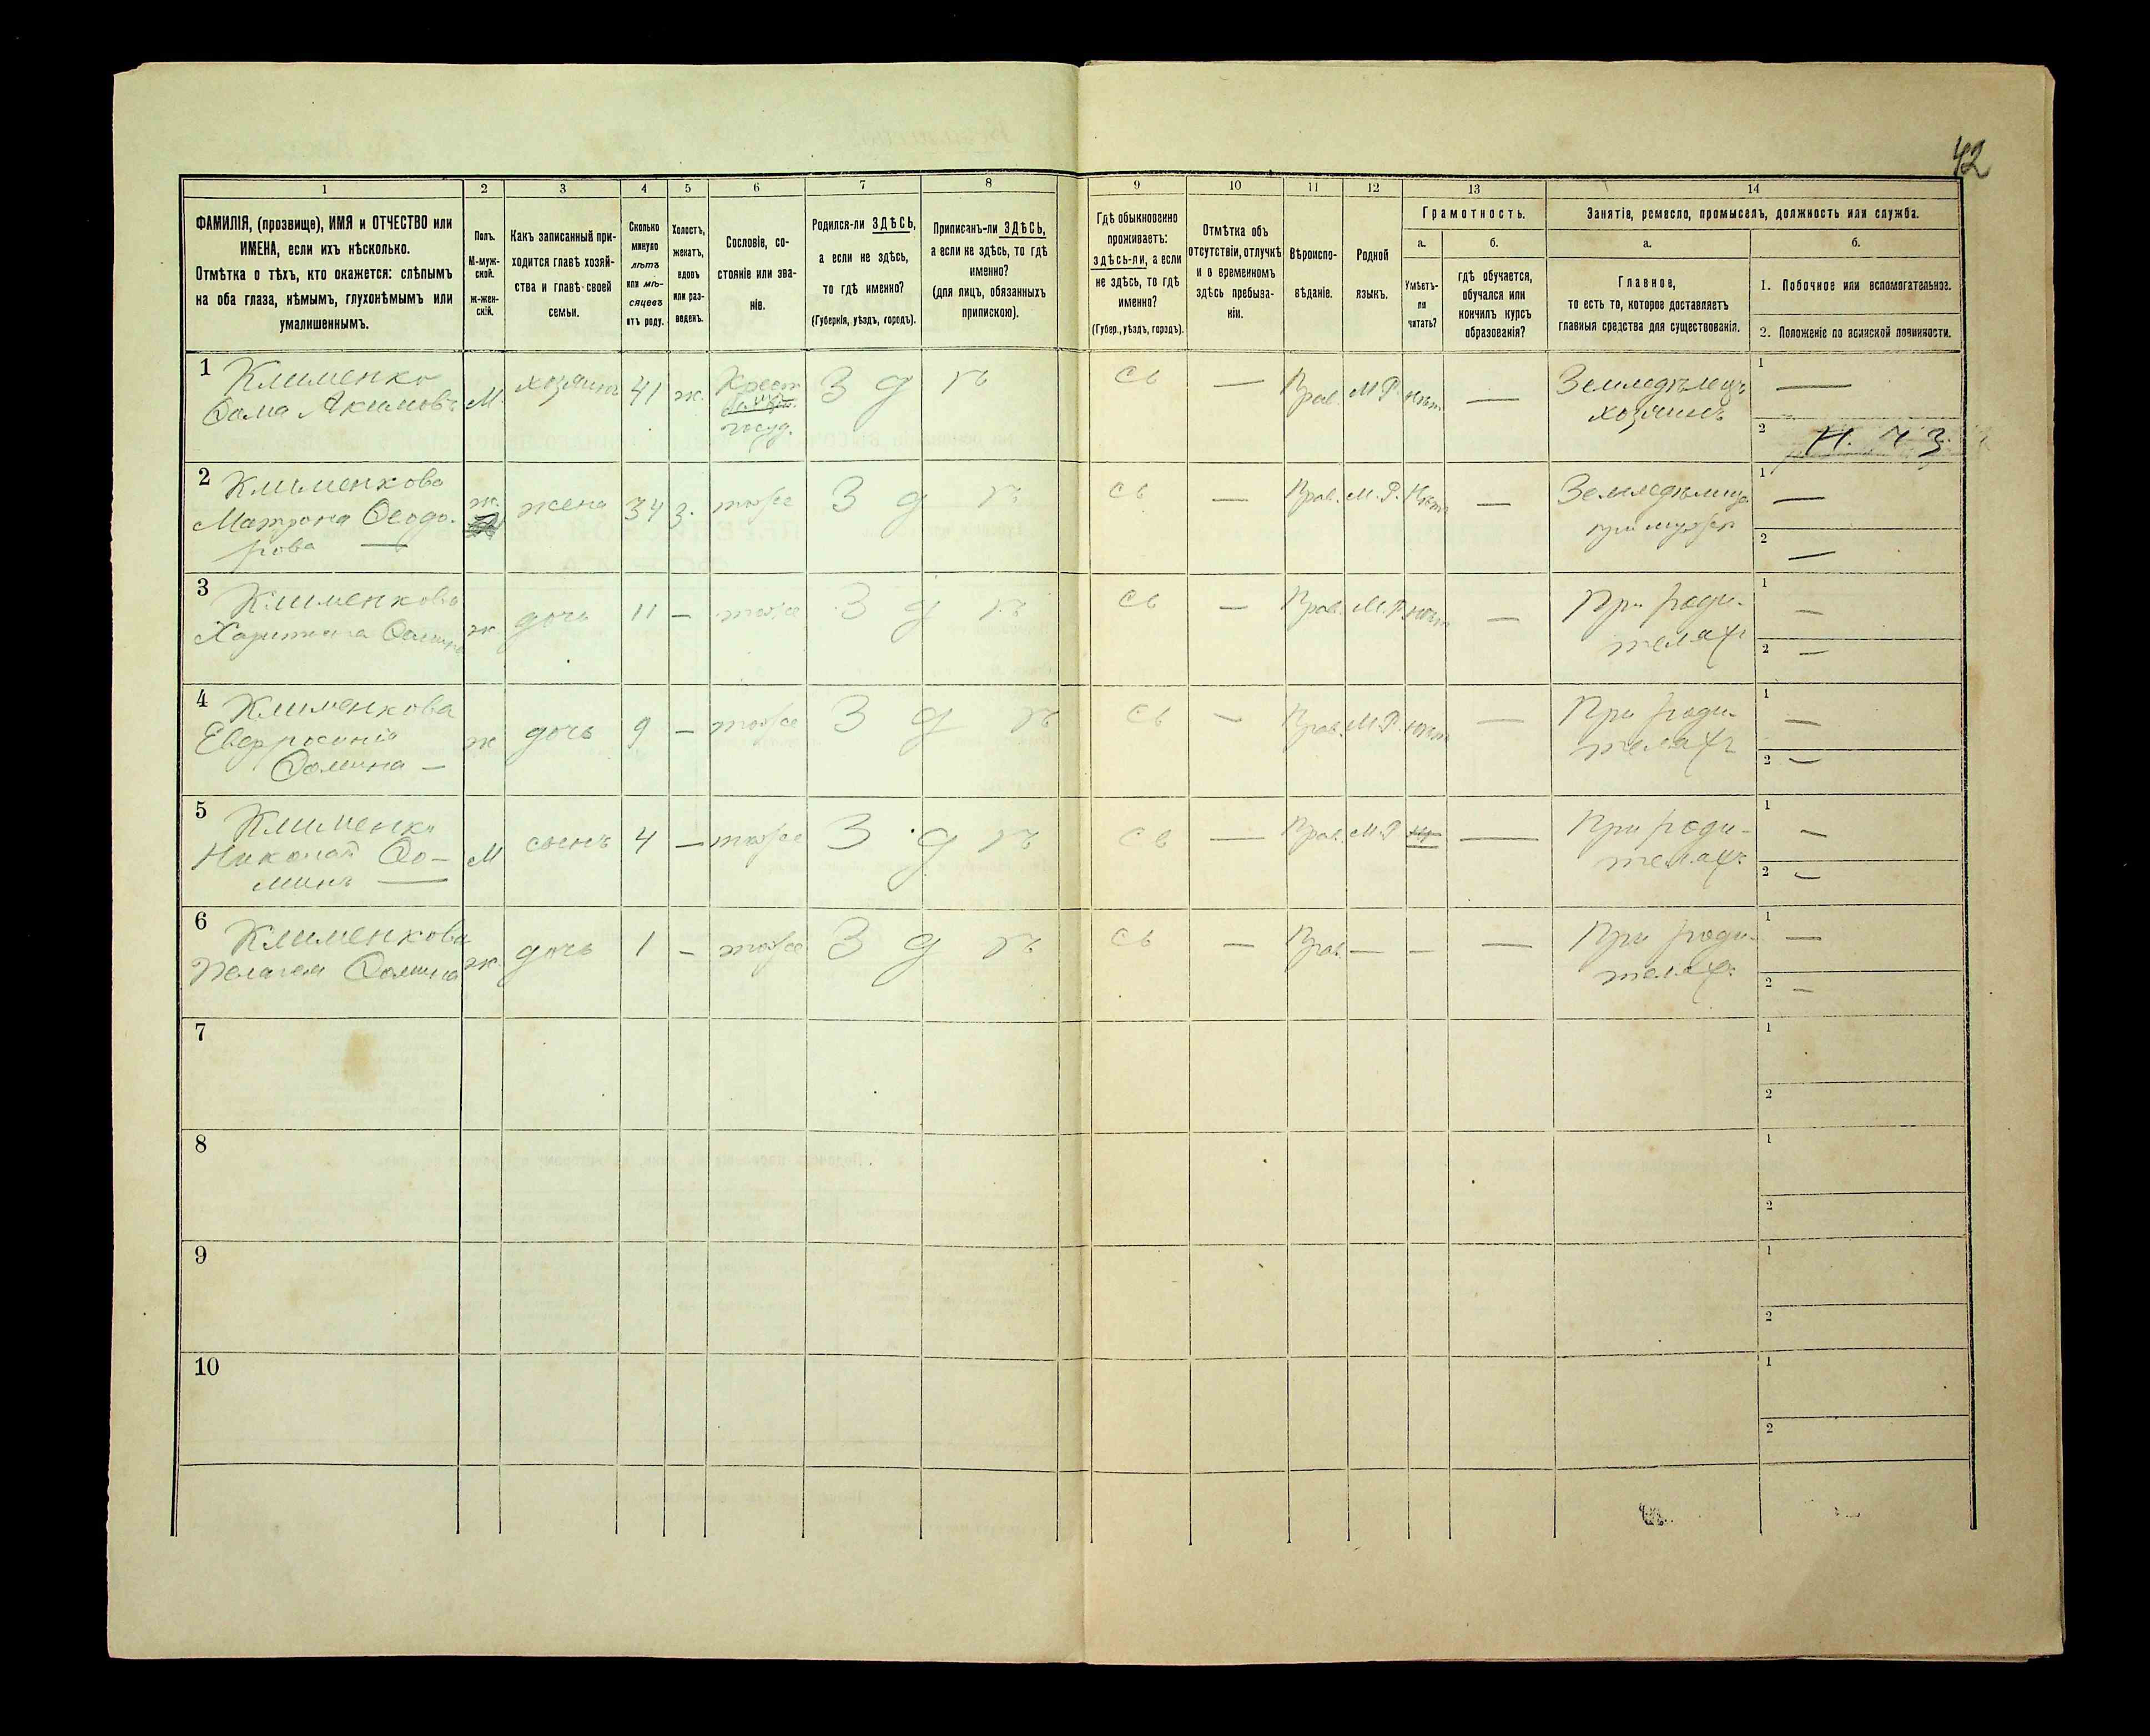 42
1 2 3 4 5 6 7 8 9 10 11 12 13 14
ФАМИЛІЯ, (прозвище), ИМЯ и ОТЧЕСТВО или
ИМЕНА, если ихъ нѣсколько.
Отмѣтка о тѣхъ, кто окажется: слѣпымъ
на оба глаза, нѣмымъ, глухонѣмымъ или
умалишеннымъ.
Полъ.
М-муж-
ской.
ж-жен-
скій.
Какъ записанный при-
ходится главѣ хозяй-
ства и главѣ своей
семьи.
Сколько
минуло
лѣтъ
или мѣ-
сяцевъ
отъ роду.
Холостъ,
женатъ,
вдовъ
или раз-
веденъ.
Сословіе, со-
стояніе или зва-
ніе.
Родился-ли ЗДѢСЬ,
а если не здѣсь,
то гдѣ именно?
(Губернія, уѣздъ, городъ).
Приписанъ-ли ЗДѢСЬ,
а если не здѣсь, то гдѣ
именно?
(для лицъ, обязанныхъ
припискою).
Гдѣ обыкновенно
проживаетъ:
здѣсь-ли, а если
не здѣсь, то гдѣ
именно?
(Губер., уѣздъ, городъ).
Отмѣтка объ
отсутствіи, отлучкѣ
и о временномъ
здѣсь пребыва-
ніи.
Вѣроиспо-
вѣданіе.
Родной
языкъ.
Грамотность.
а.
Умѣетъ-
ли
читать?
б.
гдѣ обучается,
обучался или
кончилъ курсъ
образованія?
Занятіе, ремесло, промыселъ, должность или служба.
а.
Главное,
то есть то, которое доставляетъ
главныя средства для существованія.
б.
1. Побочное или вспомогательное.
2. Положеніе по воинской повинности.
1 Клименко
Ѳома Акимовъ М. хозяинъ 41 ж. Крест
госуд. З д ѣ сь — Прав. М.Р. Нѣт — Земледѣлецъ
хозяинъ 1 —
2 Н. Ч З.
2 Клименкова
Матрона Ѳеодо-
рова — ж. жена 34 з. тоже З д ѣ сь — Прав. М.Р. Нѣт — Земледѣлица
при мужѣ 1 —
2 —
3 Клименкова
Харитина Ѳомина ж дочь 11 — тоже З д ѣ сь — Прав. М.Р. нѣт — При роди-
теляхъ 1 —
2 —
4 Клименкова
Евфросинія
Ѳомина — ж дочь 9 — тоже З д ѣ сь — Прав. М.Р. нѣт — При роди-
теляхъ 1 —
2 —
5 Клименко
Николай Ѳо-
минъ — М сынъ 4 — тоже З д ѣ сь — Прав. М.Р — При роди-
теляхъ 1 —
2 —
6 Клименкова
Пелагея Ѳомина ж. дочь 1 — тоже З д ѣ сь — Прав. — — — При роди-
теляхъ 1 —
2 —
7 1
2
8 1
2
9 1
2
10 1
2